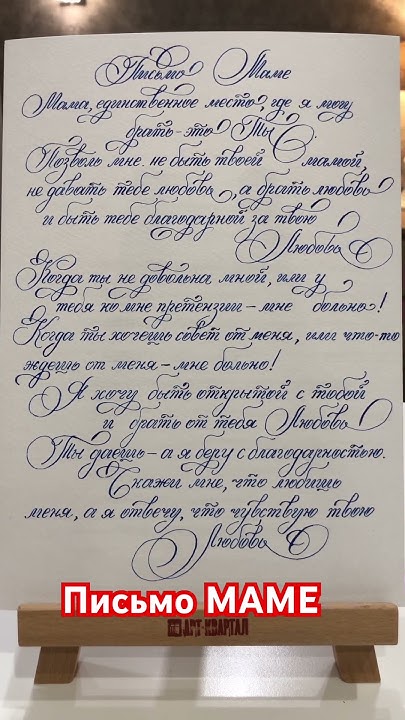 Письмо Маме
Мама, единственное место, где я могу
брать - это Ты
Позволь мне не быть твоей мамой,
не давать тебе любовь, а брать любовь
и быть тебе благодарной за твою
Любовь
Когда ты не довольна мной, или у
тебя ко мне претензии - мне больно!
Когда ты хочешь совет от меня, или что-то
ждешь от меня - мне больно!
Я хочу быть открытой с тобой
и брать от тебя Любовь
Ты даешь - а я беру с благодарностью.
Скажи мне, что любишь
меня, а я отвечу, что чувствую твою
Любовь
Письмо МАМЕ
АРТ-КВАРТАЛ